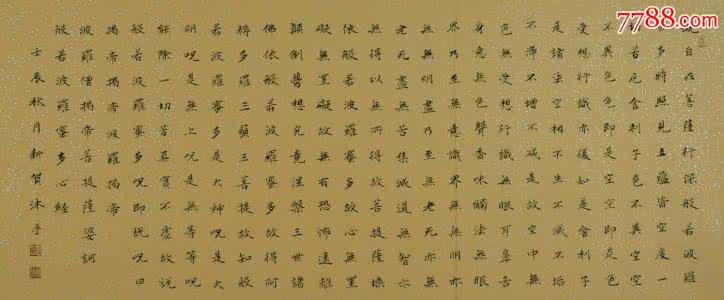 觀自在菩薩行深般若波羅
蜜多時照見五蘊皆空度一
切苦厄舍利子色不異空空
不異色色即是空空即是色
受想行識亦復如是舍利子
是諸法空相不生不滅不垢
不淨不增不減是故空中無
色無受想行識無眼耳鼻舌
身意無色聲香味觸法無眼
界乃至無意識界無無明亦
無無明盡乃至無老死亦無
老死盡無苦集滅道無智亦
無得以無所得故菩提薩埵
依般若波羅蜜多故心無罣
礙無罣礙故無有恐怖遠離
顛倒夢想究竟涅槃三世諸
佛依般若波羅蜜多故得阿
耨多羅三藐三菩提故知般
若波羅蜜多是大神呪是大
明呪是無上呪是無等等呪
能除一切苦真實不虛故說
般若波羅蜜多呪即說呪曰
揭帝揭帝波羅揭帝
波羅僧揭帝菩提薩婆訶
般若波羅蜜多心經
壬辰秋月新賀沐手
7788.com